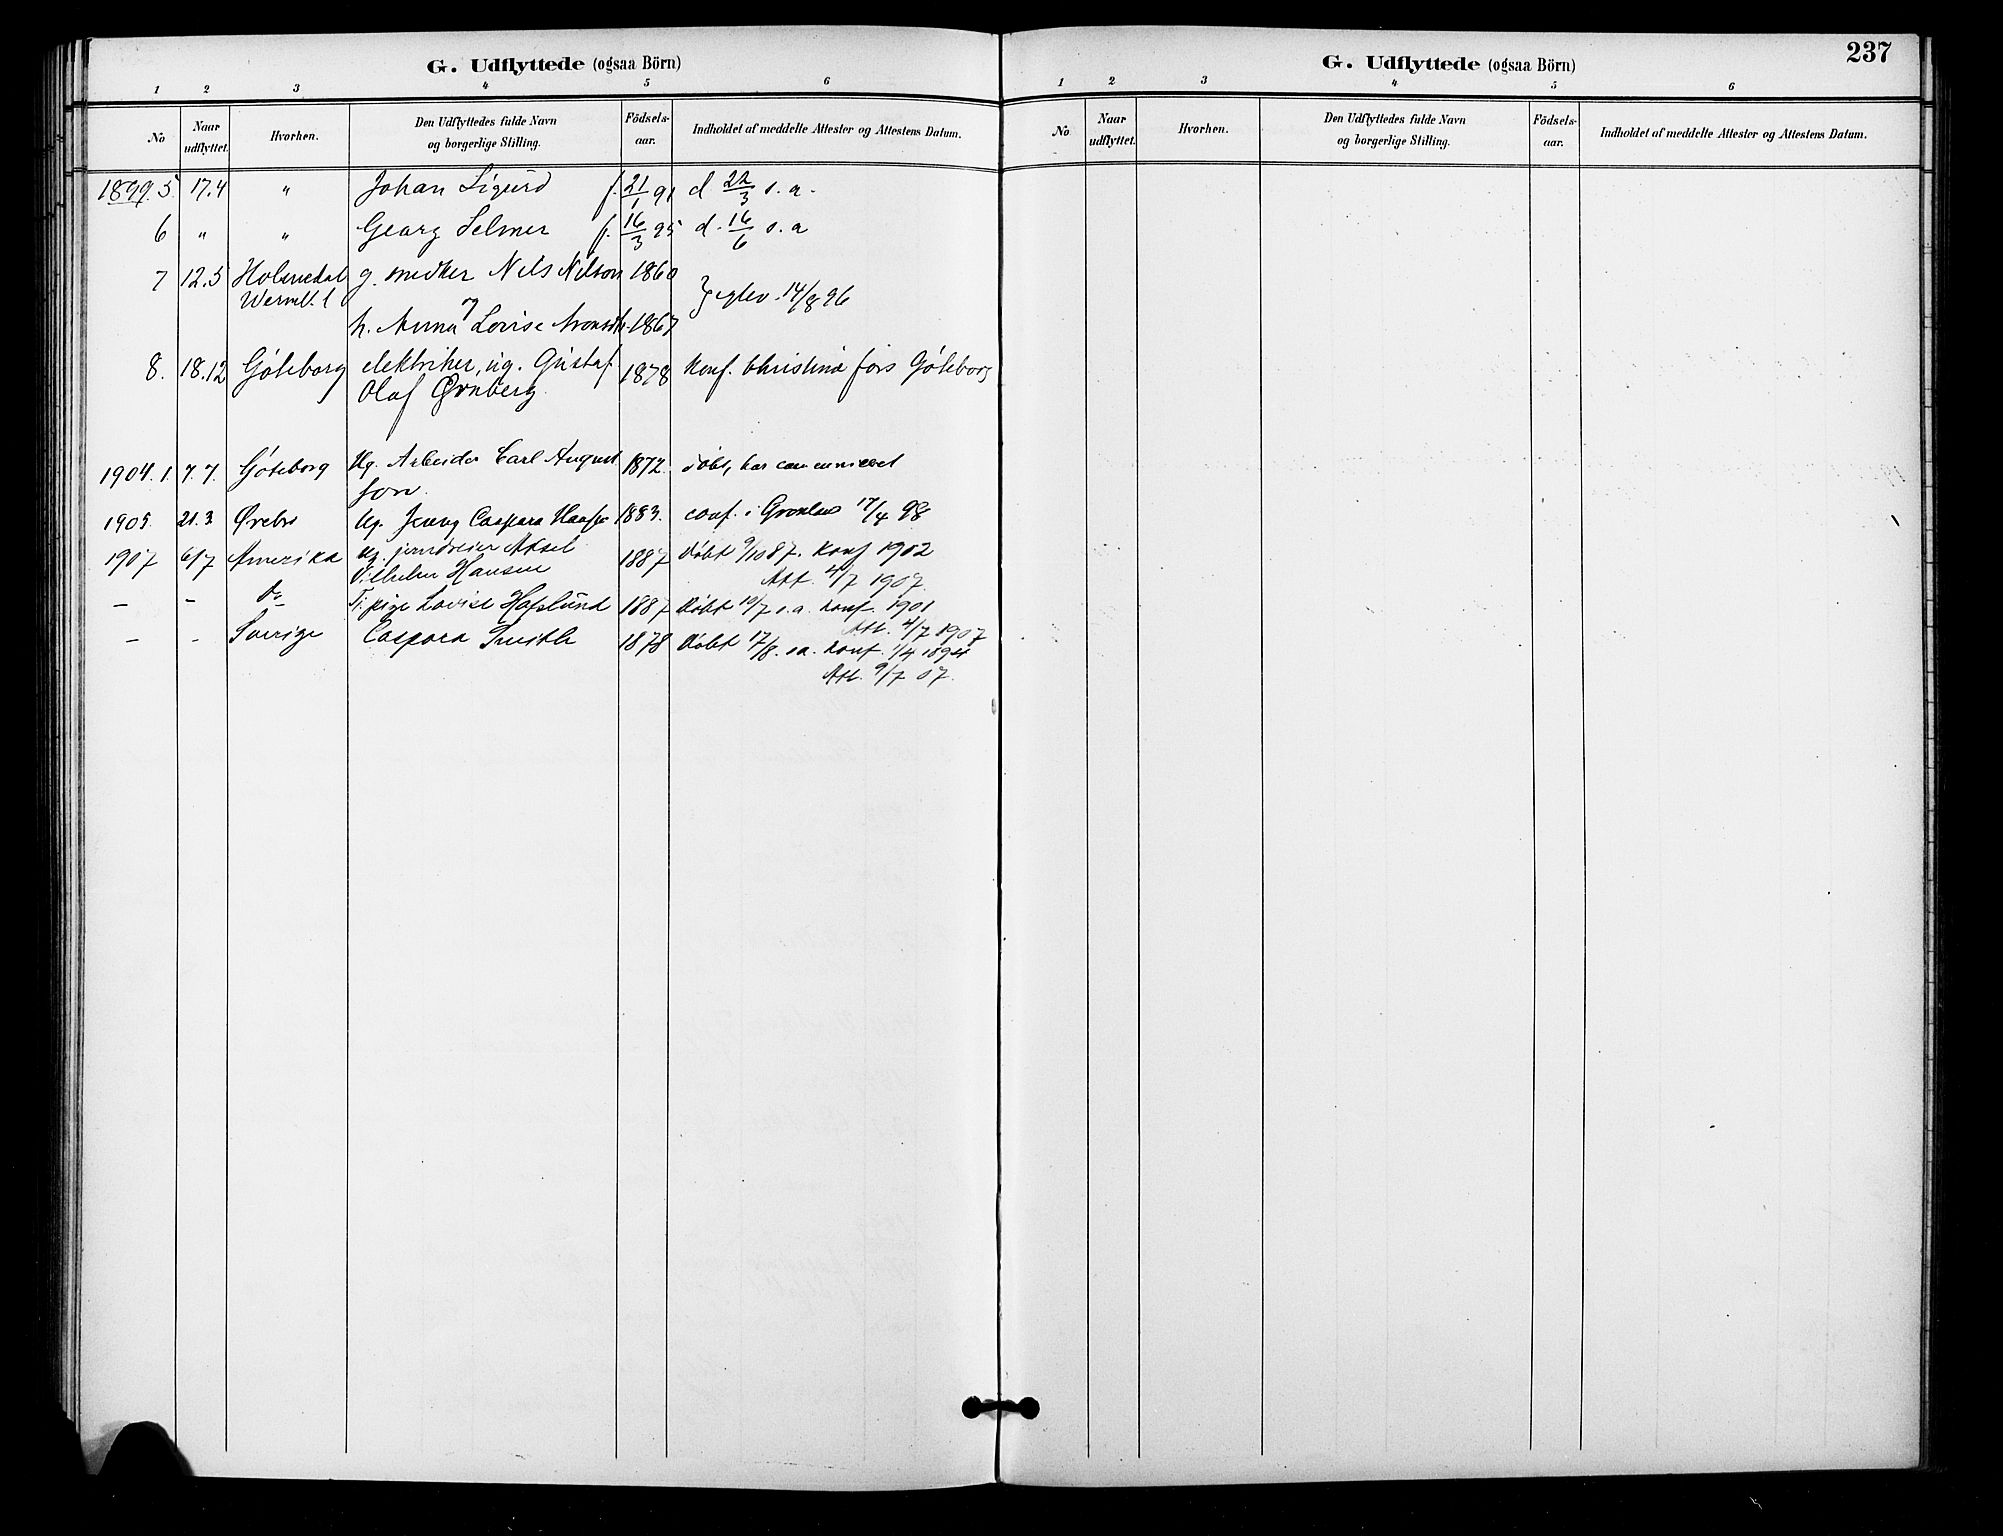 G. Udflyttede (ogsaa Börn)
1 2 3 4 5 6
No Naar udflyttet. Hvorhen. Den Udflyttedes fulde Navn og borgerlige Stilling. Födsels-aar. Indholdet af meddelte Attester og Attestens Datum.
1899. 5. 17.4 " Johan Sigurd f. 21/1 91 d 22/3 s. a.
6 " " Georg Selmer f. 16/3 95 d. 16/6 s. a
7 12.5 Holmedal g. snedker Nils Nilson 1860
Werml. l } 14/8 96
h. Anna Lovise 1867
8. 18.12 Göteborg elektriker, ug. Gustaf 1878 Konf. Christinæ förs Göteborg
Olaf Örnberg
1904. 1. 7. 7. Göteborg Ug. Arbeider Carl August 1872. döbt, har communiceret
son.
1905. 21. 3. Örebro Ug. Jenny Caspara 1883. conf. i Grönland 17/4 98
1907 6/7 Amerika Ug. Aksel 1887 Döbt 9/10 87. Konf 1902
Vilhelm Hansen Att. 4/7 1907
– – Do Tj. pige Lovise Hafslund 1887 Döbt 10/7 s. a. konf. 1901
Att. 4/7 1907
– – Sverige Caspara Smith 1878 Döbt 17/8. s a. konf. 1/4 1894
Att. 9/7 07.
237
G. Udflyttede (ogsaa Börn)
1 2 3 4 5 6
No Naar udflyttet. Hvorhen. Den Udflyttedes fulde Navn og borgerlige Stilling. Födsels-aar. Indholdet af meddelte Attester og Attestens Datum.